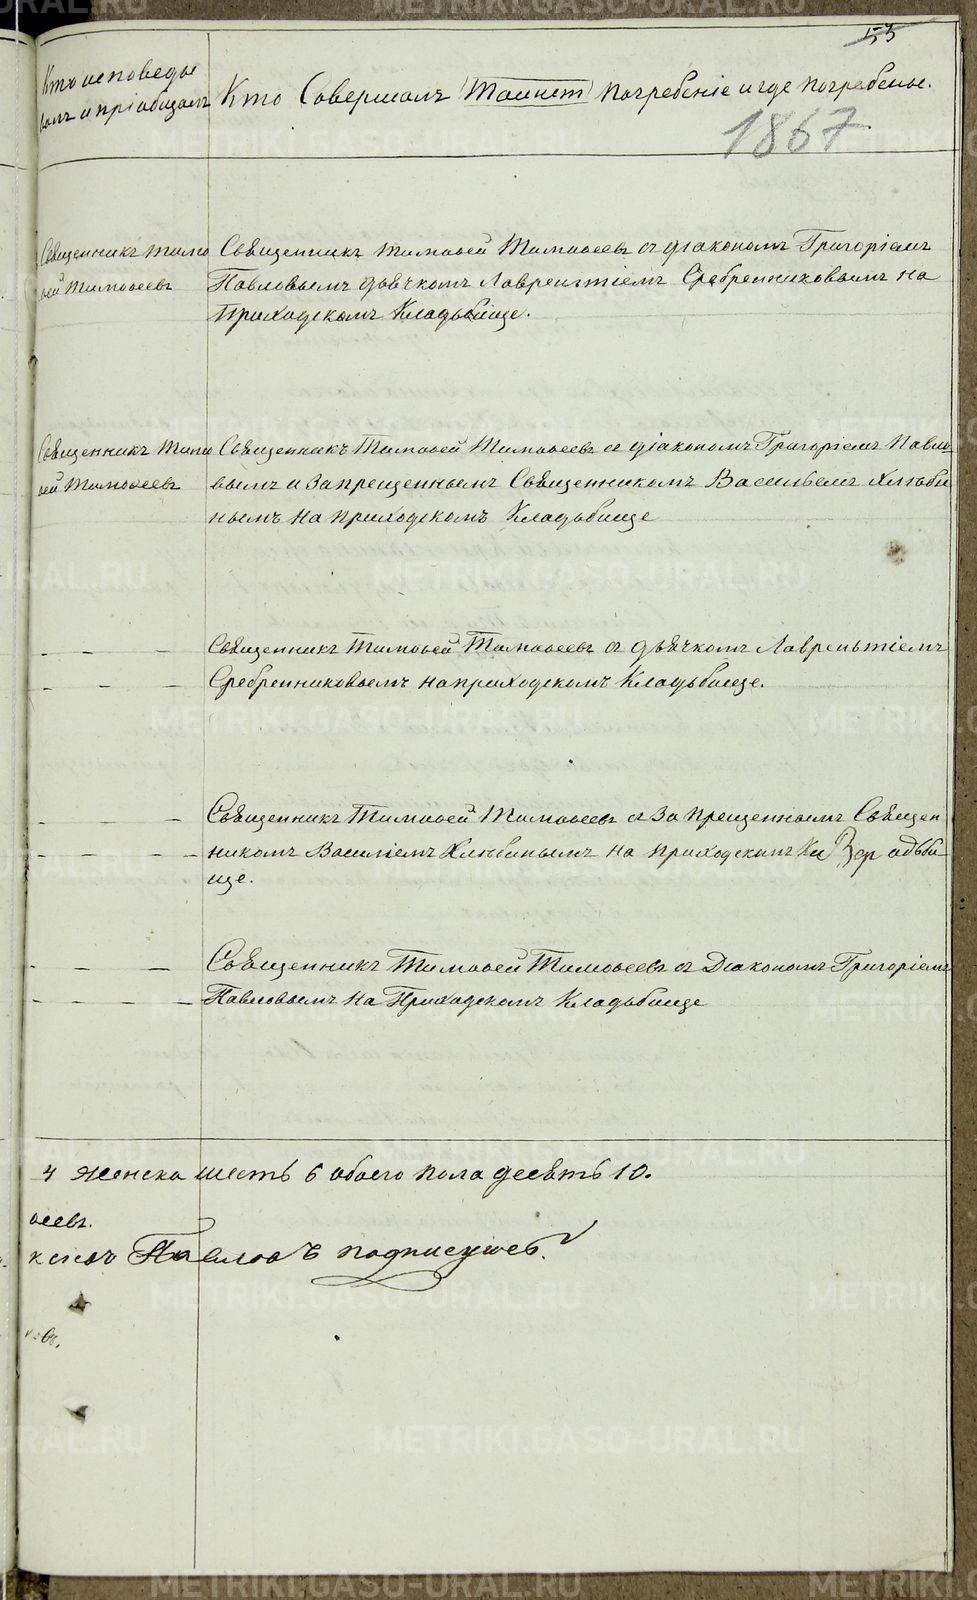 55
Кто исповеды
валъ и пріобщалъ
Кто Совершалъ Таинст погребеніе и где погребены.
1867
Священникъ Тимо
ѳей Тимоѳеевъ
Священникъ Тимоѳей Тимоѳеевъ съ діакономъ Григоріемъ
Павловымъ дьячкомъ Лаврентіемъ Сребренниковымъ на
приходскомъ Кладьбище.
Священникъ Тимо
ѳей Тимоѳеевъ
Священникъ Тимоѳей Тимоѳеевъ съ діакономъ Григоріемъ Павло
вымъ и Запрещеннымъ Священникомъ Васильемъ Хлыби
нымъ на приходскомъ Кладьбище
Священникъ Тимоѳей Тимоѳеевъ съ дьячкомъ Лаврентіемъ
Сребренниковымъ на приходскомъ Кладьбище.
Священникъ Тимоѳей Тимоѳеевъ съ Запрещеннымъ Священ
никомъ Василіемъ Хлыбинымъ на приходскомъ
ще.
Священникъ Тимоѳей Тимоѳеевъ съ Діакономъ Григоріемъ
Павловымъ на Приходскомъ Кладьбище
4 женска шесть 6 обоего пола десять 10.
ѳеевъ.
Павловъ подписуюсь.
METRIKI.GASO-URAL.RU